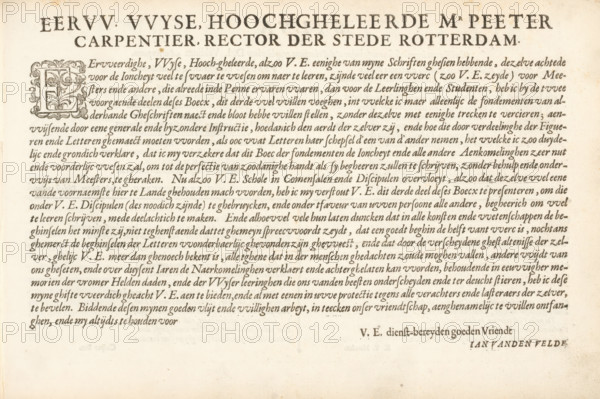 EERVV. VVYSE, HOOCHGHELEERDE Mᴿ. PEETER
CARPENTIER, RECTOR DER STEDE ROTTERDAM.
EErvveerdighe, VVyse, Hooch-gheleerde, alzoo V. E. eenighe van myne Schriften ghesien hebbende, dezelve achtede
voor de Ioncheyt veel te svvaer te vvesen om naer te leeren, zijnde veel eer een vverc (zoo V. E. zeyde) voor Mee-
sters ende andere, die alreede inde Penne ervaren vvaren, dan voor de Leerlinghen ende Studenten, heb ic by de tvvee
voorgaende deelen deses Boecx, dit derde vvel vvillen voeghen, int vvelcke ic maer alleenlijc de fondementen van al-
derhande Gheschriften naect ende bloot hebbe vvillen stellen, zonder dezelve met eenighe trecken te vercieren; aen-
vvijsende door eene generale ende byzondere Instructie, hoedanich den aerdt der zelver zij, ende hoe die door verdeelinghe der Figue-
ren ende Letteren ghemaect moeten vvorden, als ooc vvat Letteren haer schepsel d'een van d'ander nemen, het vvelke ic zoo duyde-
lijc ende grondich verklare, dat ic my verzekere dat dit Boec der fondementen de Ioncheyt ende alle andere Aenkomelinghen zeer nut
ende voorderlijc vvesen zal, om tot de perfectie van zoodanighe handt als sy begheeren zullen te schrijven, zonder behulp ende onder-
vvijst van Meesters, te gheraken. Nu alzoo V. E. Schole in Comensalen ende Discipulen overvloeyt, alzoo dat dezelve vvel eene
vande voornaemste hier te Lande ghehouden mach vvorden, heb ic my verstout V. E. dit derde deel deses Boecx te presenteren, om die
onder V. E. Discipulen (des noodich zijnde) te ghebruycken, ende onder tfaveur van uvven persoone alle andere, begheerich om vvel
te leeren schrijven, mede deelachtich te maken. Ende alhoevvel vele hun laten duncken dat in alle konsten ende vvetenschappen de be-
ghinselen het minste zij, niet teghenstaende dattet ghemeyn spreecvvoordt zeydt, dat een goedt beghin de helft vant vverc is, nochtans
ghemerct de beghinselen der Letteren vvonderbaerlijc ghevonden zijn ghevveest, ende dat door de verscheydene ghestaltenisse der zel-
ver, ghelijc V. E. meer dan ghenoech bekent is, alle ighene dat in der menschen ghedachten zoude moghen vallen, andere vvijdt van
ons gheseten, ende over duysent Iaren de Naerkomelinghen verklaert ende achterghelaten kan vvorden, behoudende in eeuvvigher me-
morien der vromer Helden daden, ende der VVyser leeringhen die ons vanden beesten onderscheyden ende ter deucht stieren, heb ic dese
myne ghifte vveerdich gheacht V. E. aen te bieden, ende al met eenen in uvve protectie tegens alle verachters ende lasteraers der zelver,
te bevelen. Biddende desen mynen goeden vlijt ende vvillighen arbeyt, in teecken onser vriendtschap, aenghenamelijc te vvillen ontfan-
ghen, ende my altijdts te houden voor
V. E. dienst-bereyden goeden Vriendt
IAN VANDEN VELDE.